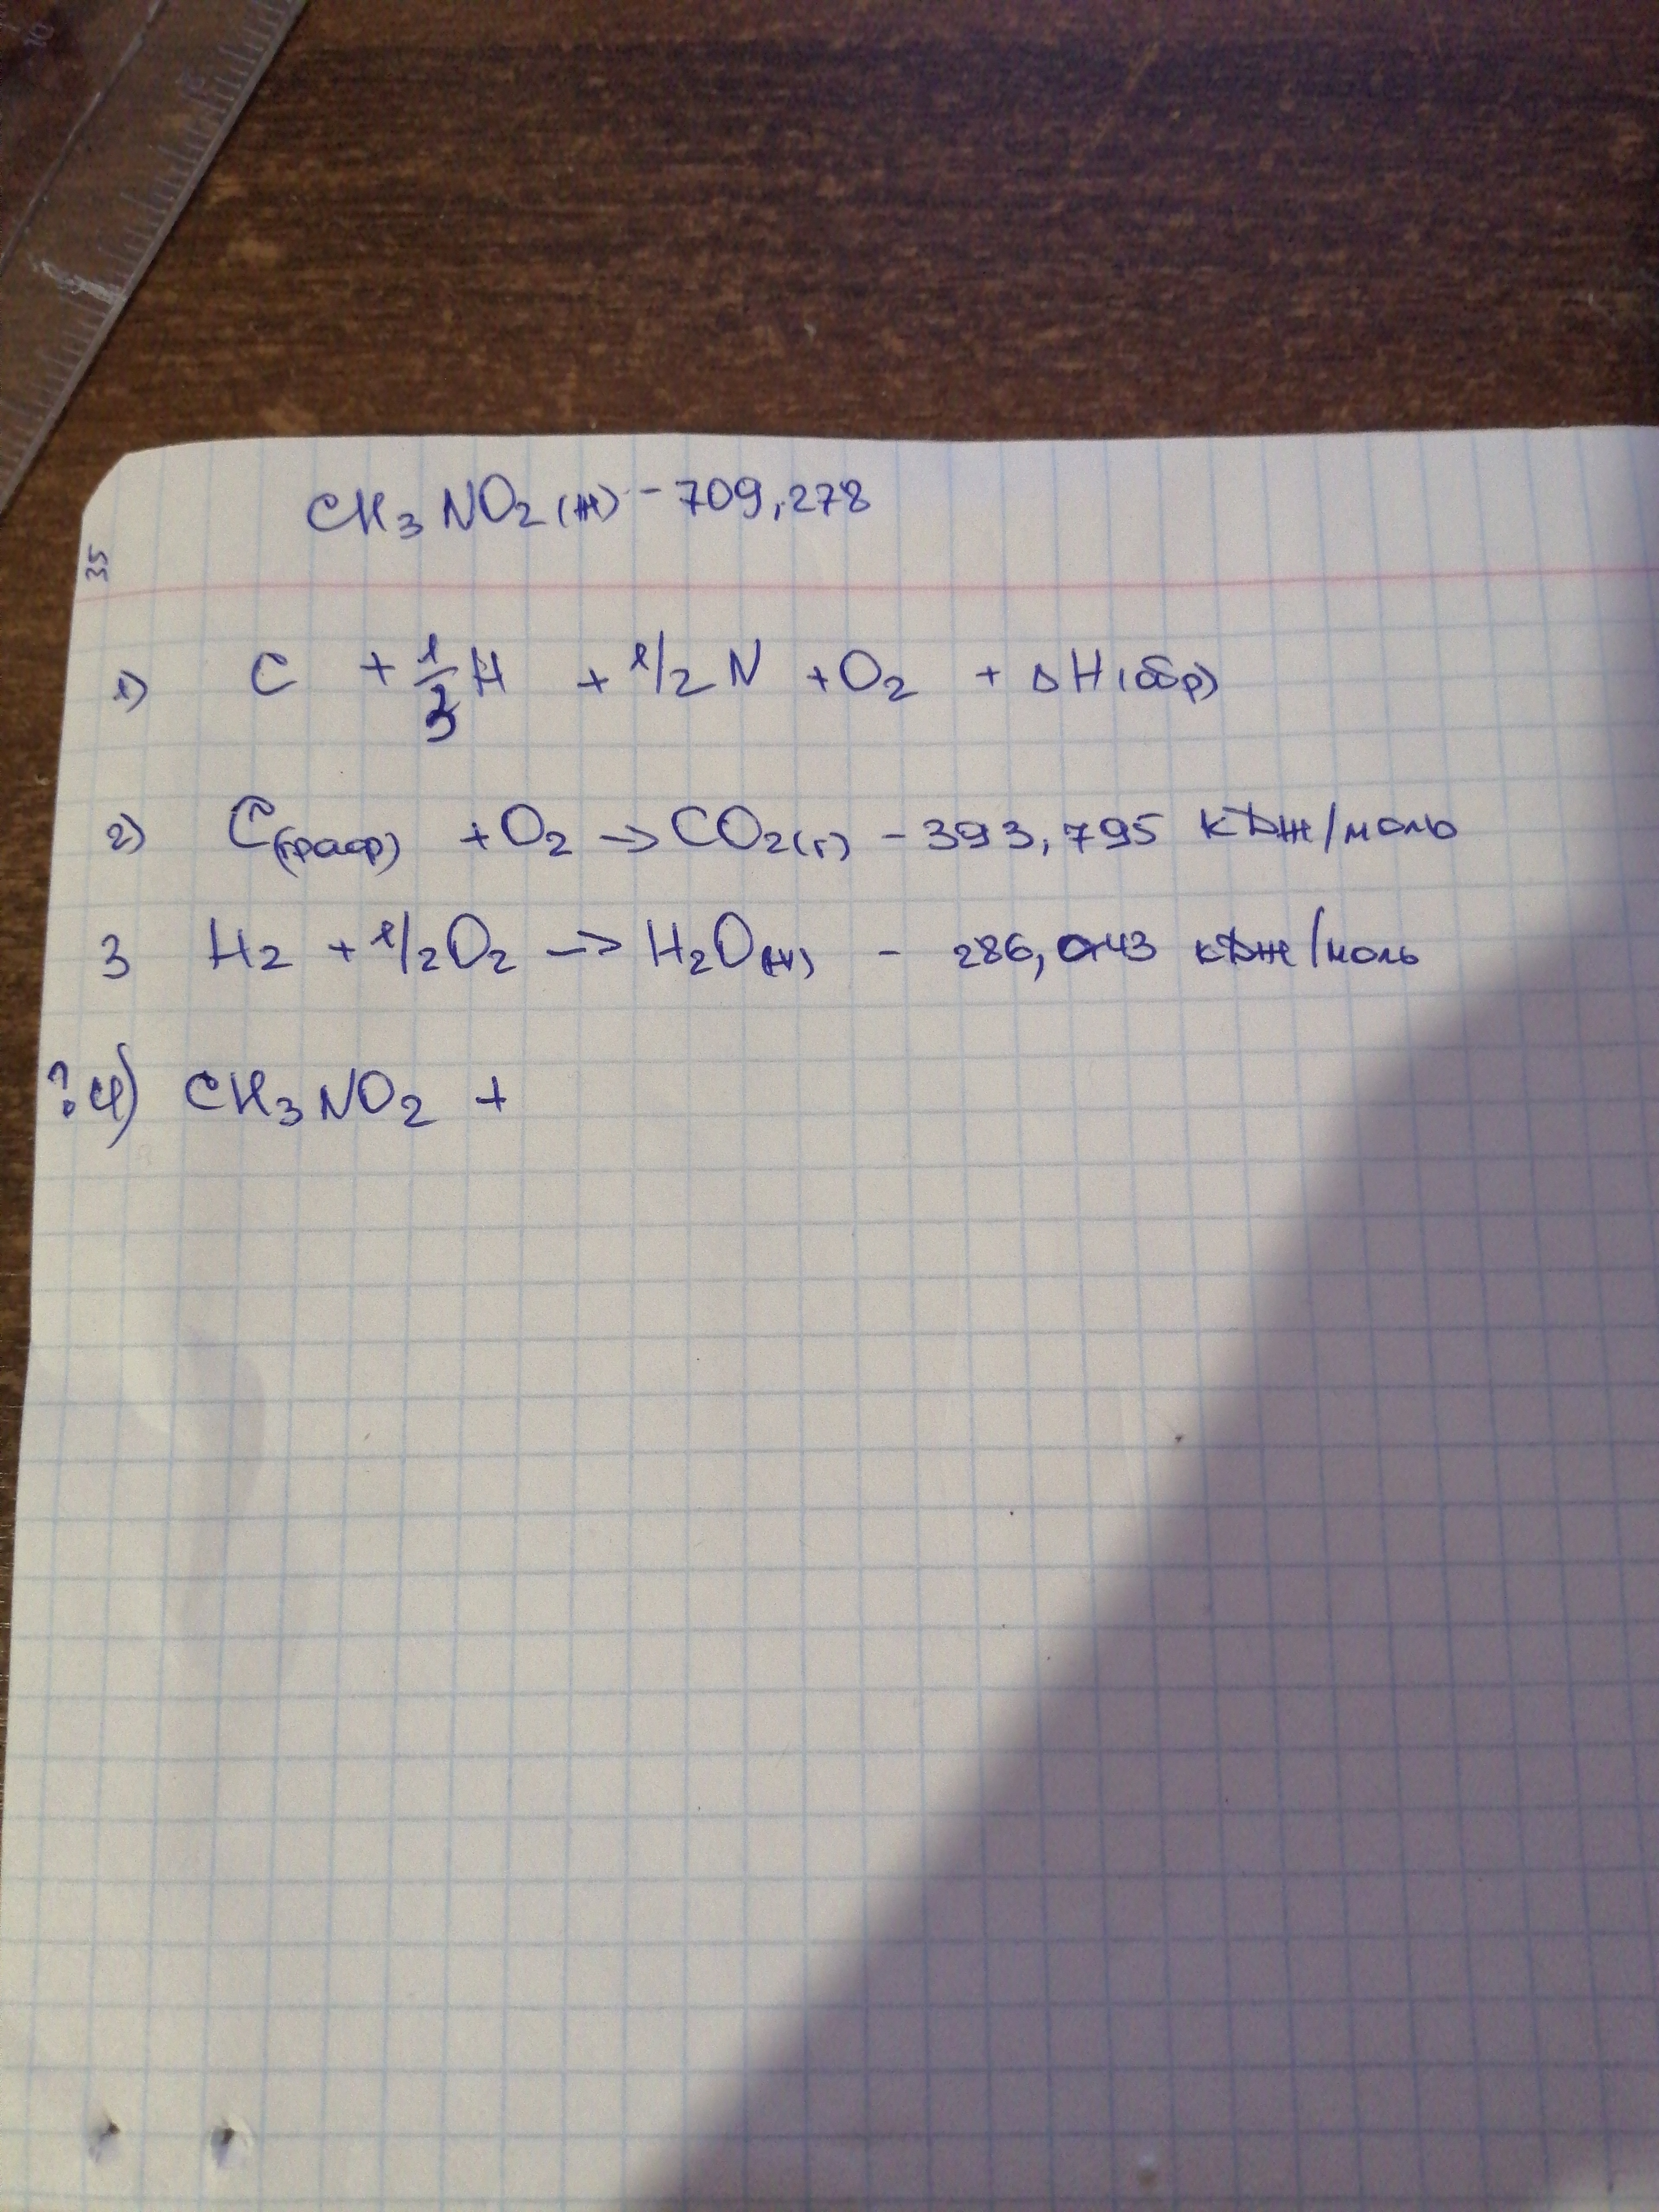 CH₃NO₂(ж) - 709,278
35
1) C + 1/3 H + 1/2 N + O₂ + ΔH(обр)
2) C(граф) + O₂ → CO₂(г) - 393,795 кДж/моль
3 H₂ + 1/2 O₂ → H₂O(ж) - 286,043 кДж/моль
? 4) CH₃NO₂ +